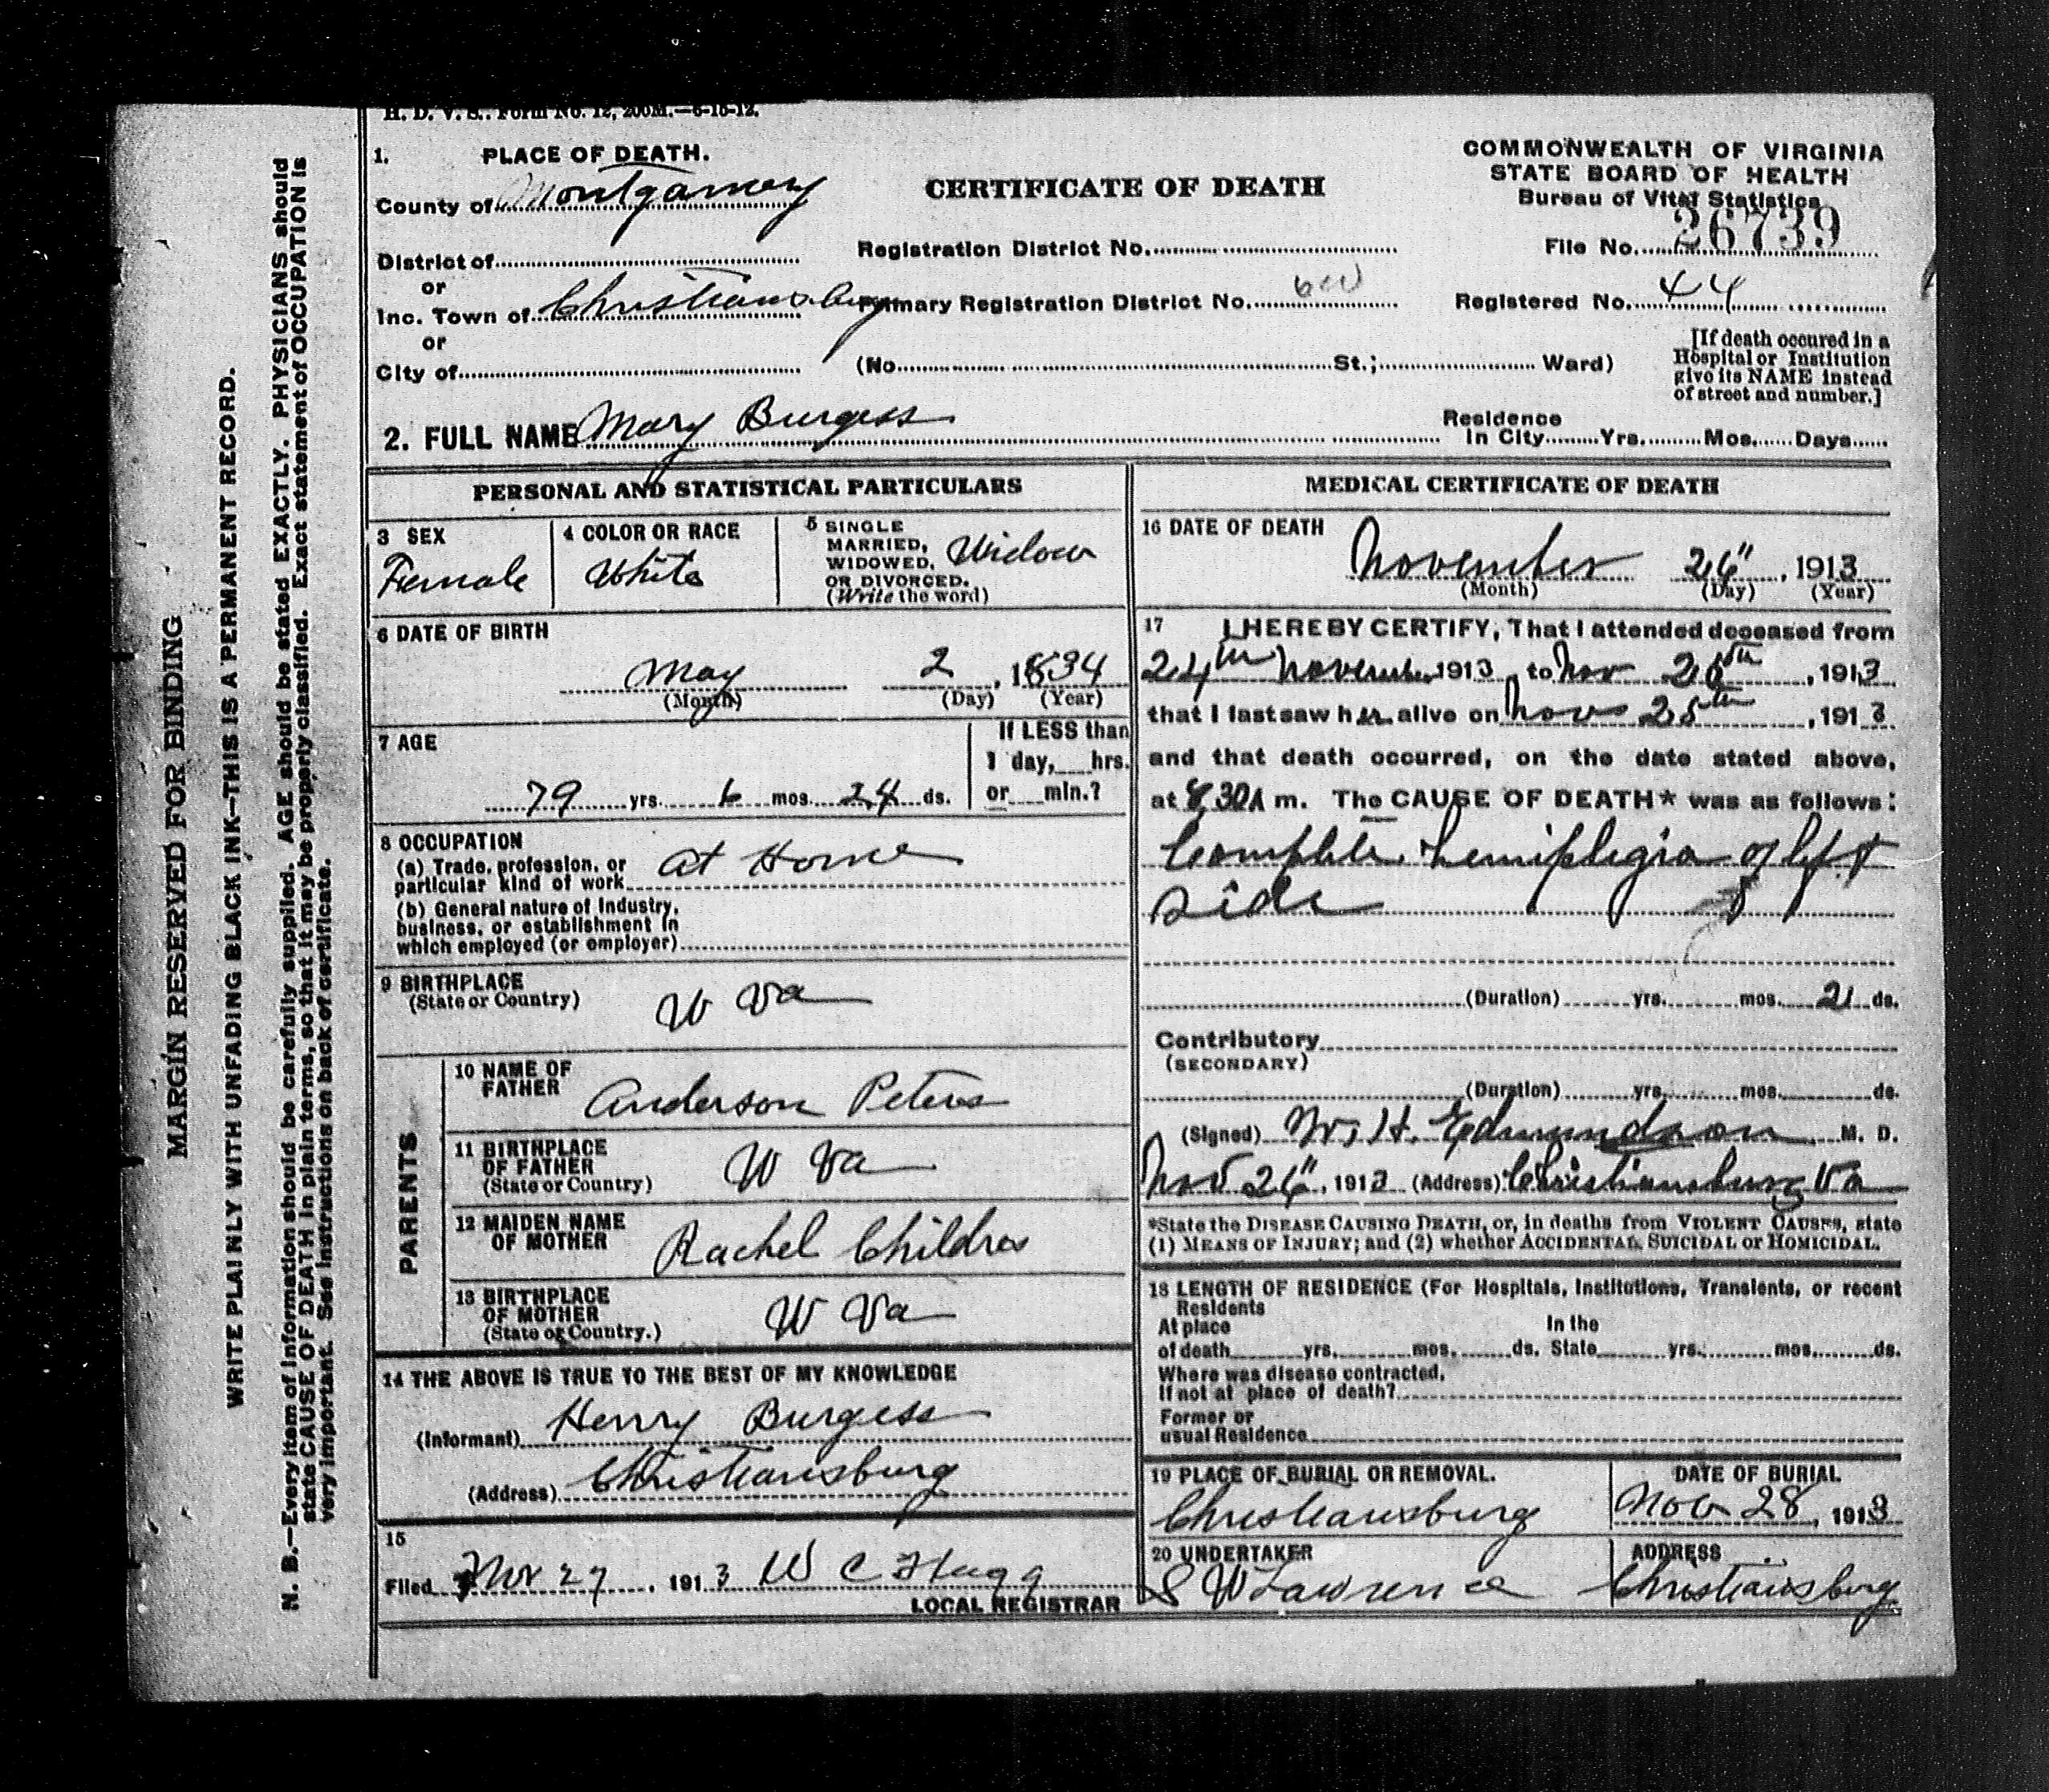 H. D. V. S.: Form No. 12, 200M.—6-15-12.
MARGIN RESERVED FOR BINDING
WRITE PLAINLY WITH UNFADING BLACK INK—THIS IS A PERMANENT RECORD.
N. B.—Every item of information should be carefully supplied. AGE should be stated EXACTLY. PHYSICIANS should
state CAUSE OF DEATH in plain terms, so that it may be properly classified. Exact statement of OCCUPATION is
very important. See instructions on back of certificate.
1. PLACE OF DEATH.
County of Montgomery
District of
or
Inc. Town of Christiansburg
or
City of
CERTIFICATE OF DEATH
Registration District No.
Primary Registration District No.
(No. St.; Ward)
COMMONWEALTH OF VIRGINIA
STATE BOARD OF HEALTH
Bureau of Vital Statistics
File No. 26739
Registered No. 44
[If death occured in a
Hospital or Institution
give its NAME instead
of street and number.]
2. FULL NAME Mary Burgess
Residence
In City Yrs. Mos. Days
PERSONAL AND STATISTICAL PARTICULARS
3 SEX
Female
4 COLOR OR RACE
White
5 SINGLE
MARRIED,
WIDOWED,
OR DIVORCED.
(Write the word)
Widow
6 DATE OF BIRTH
May 2, 1834
(Month) (Day) (Year)
7 AGE
79 yrs. 6 mos. 24 ds.
If LESS than
1 day, hrs.
or min.?
8 OCCUPATION
(a) Trade, profession, or
particular kind of work At Home
(b) General nature of Industry,
business, or establishment in
which employed (or employer)
9 BIRTHPLACE
(State or Country) W Va
PARENTS
10 NAME OF
FATHER Anderson Peters
11 BIRTHPLACE
OF FATHER
(State or Country) W Va
12 MAIDEN NAME
OF MOTHER Rachel Childres
13 BIRTHPLACE
OF MOTHER
(State or Country.) W Va
14 THE ABOVE IS TRUE TO THE BEST OF MY KNOWLEDGE
(Informant) Henry Burgess
(Address) Christiansburg
15
Filed Nov 27, 1913 W C Flagg
LOCAL REGISTRAR
MEDICAL CERTIFICATE OF DEATH
16 DATE OF DEATH
November 26", 1913
(Month) (Day) (Year)
17 I HEREBY CERTIFY, That I attended deceased from
24th November 1913, to Nov 26th, 1913
that I last saw her alive on Nov 25th, 1913
and that death occurred, on the date stated above,
at 8.30 A m. The CAUSE OF DEATH* was as follows:
Complete hemiplegia of left
side
(Duration) yrs. mos. 21 ds.
Contributory
(SECONDARY)
(Duration) yrs. mos. ds.
(Signed) W. H. Edmundson M. D.
Nov 26", 1913 (Address) Christiansburg Va
*State the DISEASE CAUSING DEATH, or, in deaths from VIOLENT CAUSES, state
(1) MEANS OF INJURY; and (2) whether ACCIDENTAL, SUICIDAL or HOMICIDAL.
18 LENGTH OF RESIDENCE (For Hospitals, Institutions, Transients, or recent
Residents
At place In the
of death yrs. mos. ds. State yrs. mos. ds.
Where was disease contracted,
If not at place of death?
Former or
usual Residence
19 PLACE OF BURIAL OR REMOVAL.
Christiansburg
DATE OF BURIAL
Nov 28, 1913
20 UNDERTAKER
S W Lawrence
ADDRESS
Christiansburg